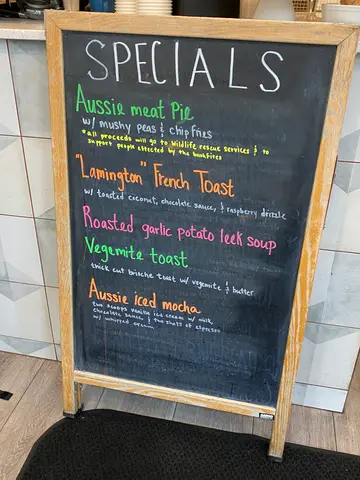 SPECIALS
Aussie meat Pie
w/ mushy peas & chip fries
*all proceeds will go to wildlife rescue services & to
support people effected by the bushfires
"Lamington" French Toast
w/ toasted coconut, chocolate sauce, & raspberry drizzle
Roasted garlic potato leek soup
Vegemite toast
thick cut brioche toast w/ vegemite & butter
Aussie iced mocha
two scoops vanilla ice cream w/ milk,
chocolate sauce, & two shots of espresso
w/ whipped cream